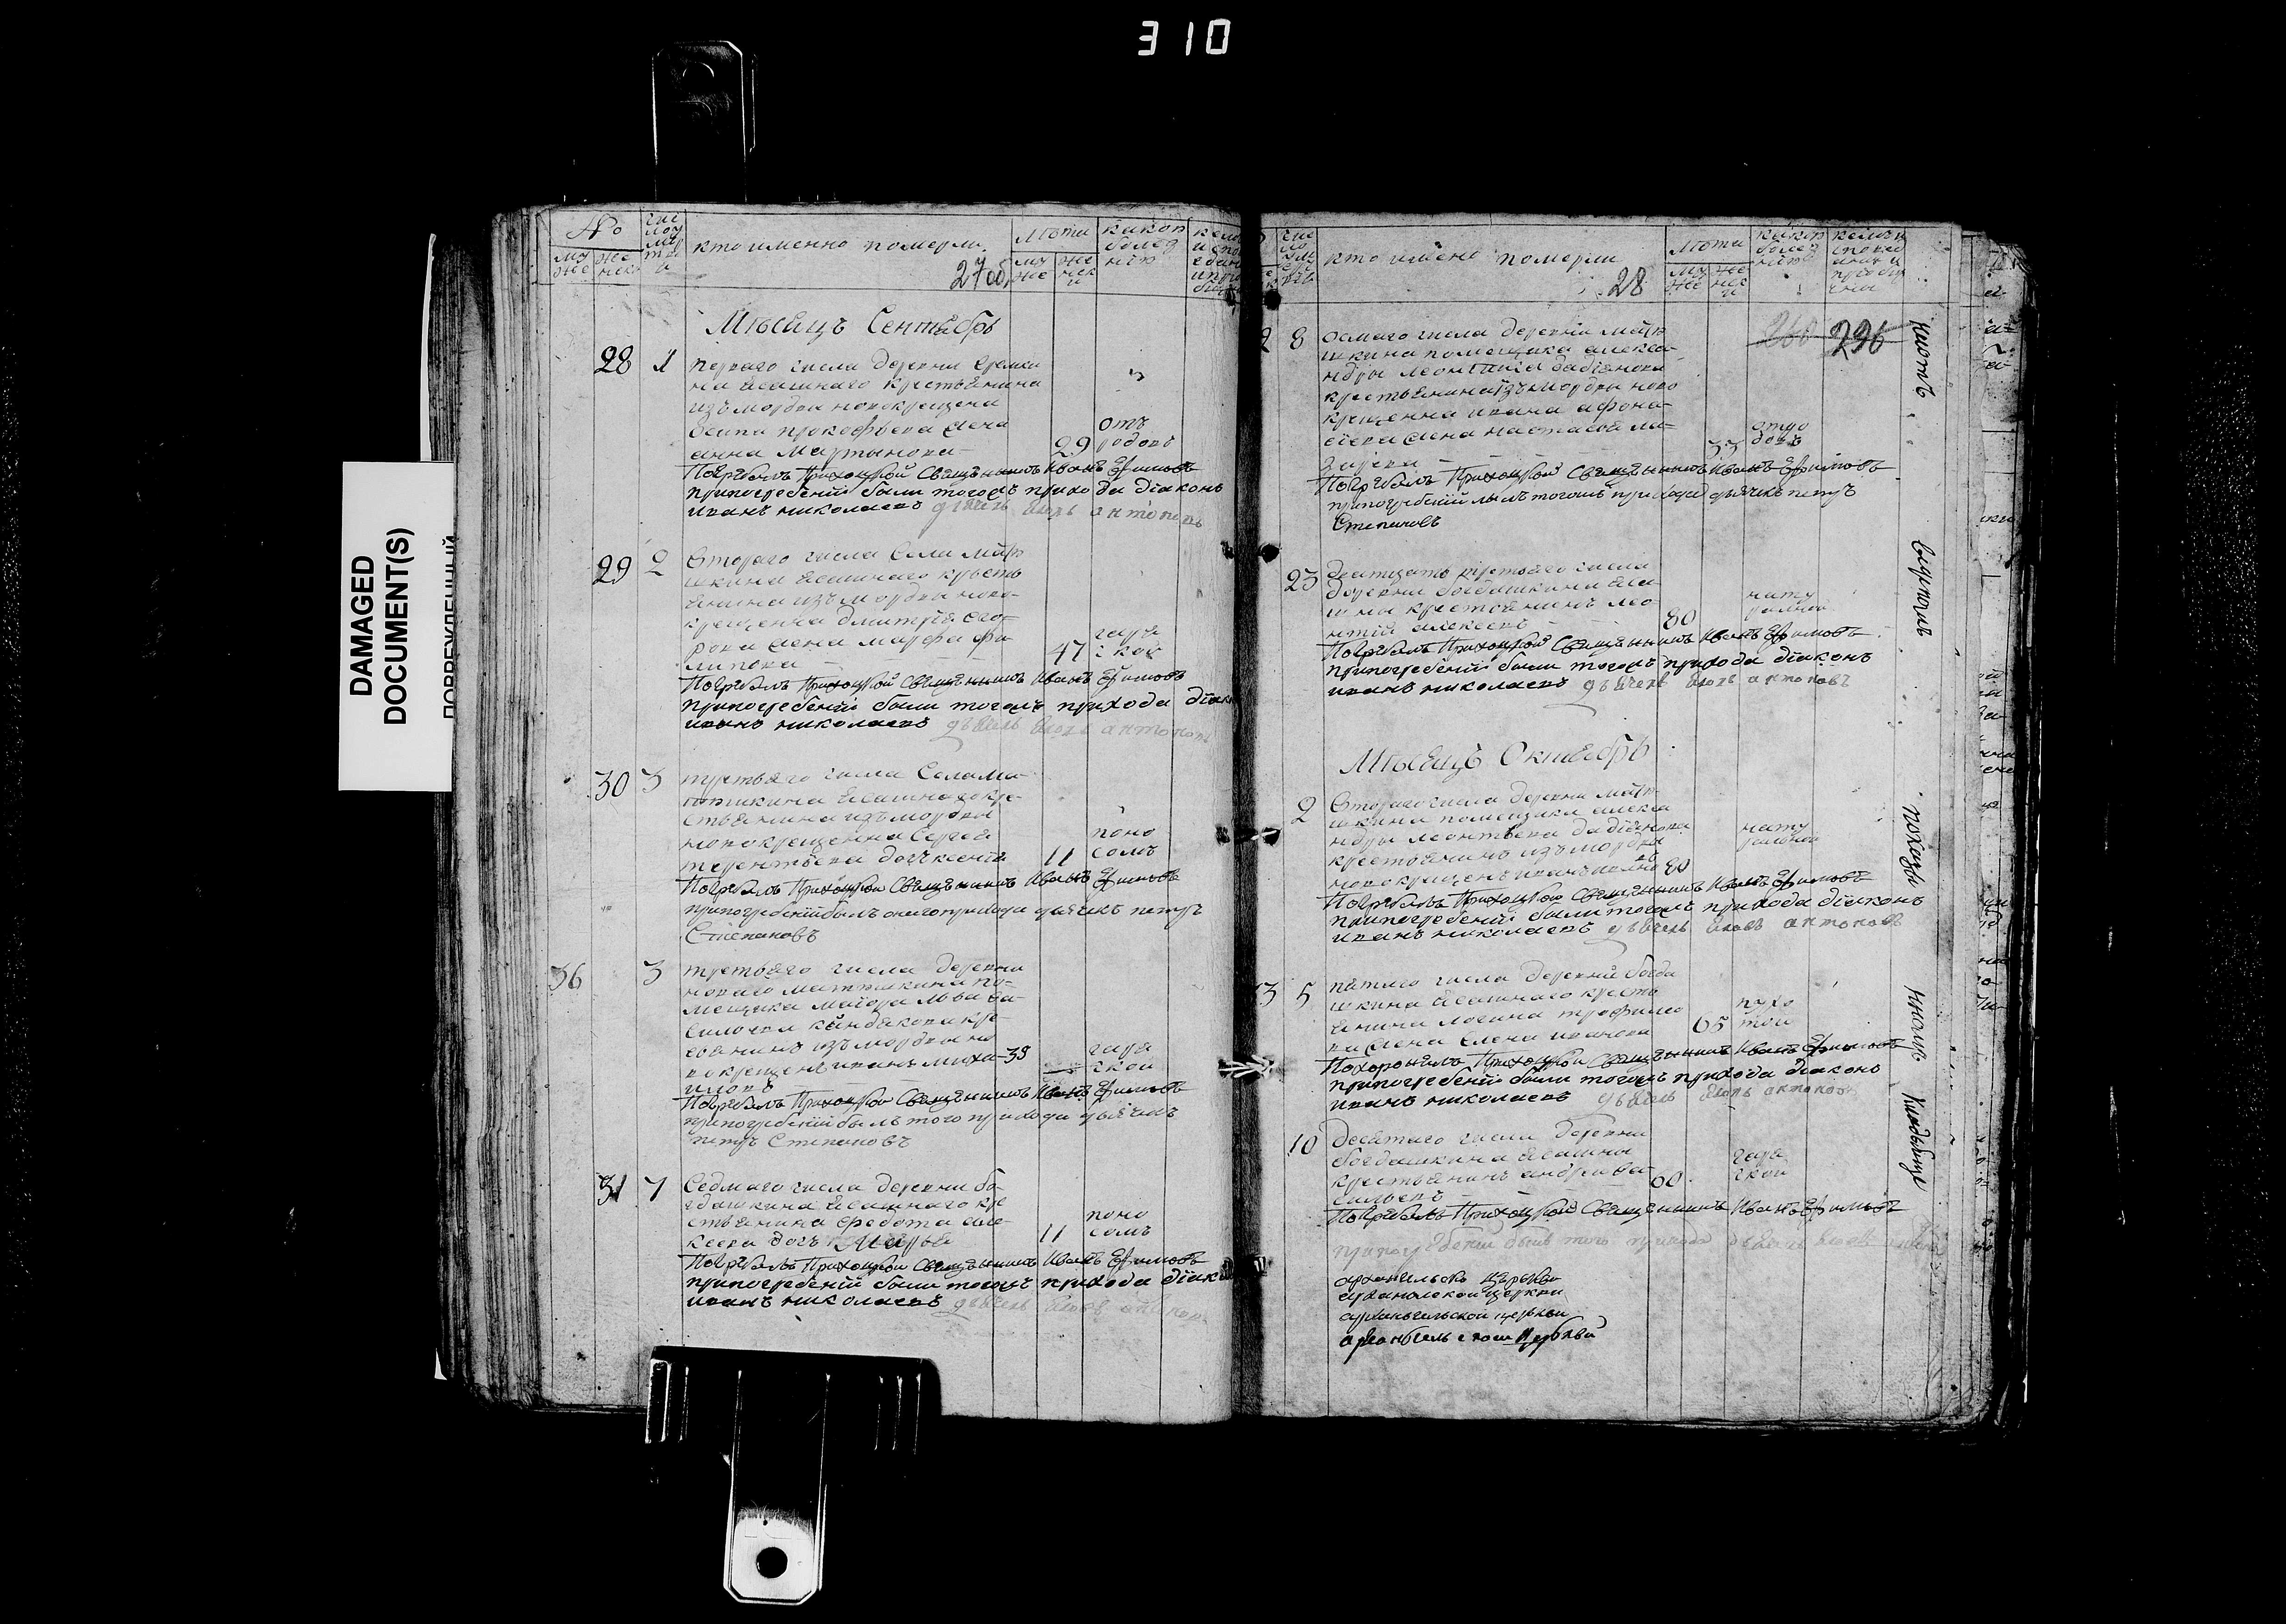 310
DAMAGED
DOCUMENT(S)
№
му
же
жен
ска
чис
ло
кто именно померли
27об.
Лѣта
му
же
же
нск
и
какою
болез
нію
Мѣсяцъ Сентябрь
28 1 перваго числа деревни
ясашнаго крестьянина
изъ мордвы новокрещена
осипа прокофьева жена
анна мартынова 29 отъ родовъ
Погрѣбалъ Приходцкой Священникъ Иванъ Ефимовъ
при погребеніи были тогожъ прихода діаконъ
иванъ николаевъ дьячекъ яковъ антоновъ
29 2 втораго числа села матю
шкина ясашнаго кресть
янина изъ мордвы ново
крещенна дмитрія его
рова жена марфа фи
липова 47 горячкою
Погрѣбалъ Приходцкой Священникъ Иванъ Ефимовъ
при погребеніи были тогожъ прихода діак
иванъ николаевъ дьячекъ яковъ антоновъ
30 3 третьяго числа села ма
тюшкина ясашнаго кре
стьянина изъ мордвы
новокрещенна сергея
терентьева дочь ксенія 11 поносомъ
Погрѣбалъ Приходцкой Священникъ Иванъ Ефимовъ
при погребеніи былъ онаго прихода дьячекъ петръ
Степановъ
36 3 третьяго числа деревни
новаго матюшкина по
мещика маіора льва ва
силичева кре
изъ мордвы но
вокрещенъ иванъ миха 39 горячкой
иловъ
Погрѣбалъ Приходцкой Священникъ Иванъ Ефимовъ
при погребеніи былъ того прихода дьячекъ
петръ Степановъ
31 7 Седмаго числа деревни бо
гдашкина ясашнаго кре
стьянина федота але
ксеева дочь марья 11 поносомъ
Погрѣбалъ Приходцкой Священникъ Иванъ Ефимовъ
при погребеніи были тогожъ прихода діак
иванъ николаевъ дьячекъ яковъ антонов
кто имено померли
28
Лѣта
му
же
же
нск
и
какою
болез
нію
260 296
8 осмаго числа деревни матю
шкина помещика алекса
ндры леонтиева дадіянова
крестьянина изъ мордвы ново
крещенна ивана афона
сиева жена настасья ла
зарева 33 отъ родовъ
Погрѣбалъ Приходцкой Священникъ Иванъ Ефимовъ
при погребеніи былъ тогожъ прихода дьячекъ петръ
Степановъ
23 дватцать третьяго числа
деревни богдашкина яса
шны крестьянинъ лео
нтій алексеевъ 80 натуралной
Погрѣбалъ Приходцкой Священникъ Иванъ Ефимовъ
при погребеніи были тогожъ прихода діаконъ
иванъ николаевъ дьячекъ яковъ антоновъ
Мѣсяцъ Октябрь
2 втораго числа деревни матю
шкина помещика алекса
ндры леонтьева дадіянова
крестьянинъ изъ мордвы
новокрещенъ иванъ 80 натуралной
Погрѣбалъ Приходцкой Священникъ Иванъ Ефимовъ
при погребеніи были тогожъ прихода діаконъ
иванъ николаевъ дьячекъ яковъ антоновъ
5 пятаго числа деревни богда
шкина ясашнаго кресть
янина логина трофимо
ва жена елена иванова 65
Похоронилъ Приходцкой Священникъ Иванъ Ефимовъ
при погребеніи были тогожъ прихода діаконъ
иванъ николаевъ дьячекъ яковъ антонов
10 десятаго числа деревни
богдашкина ясашны
крестьянинъ андрей ва
сильевъ 60 горячкой
Погрѣбалъ Приходцкой Священникъ Иванъ Ефимовъ
при погребеніи былъ того прихода
архангельской церкви
архангельской церкви